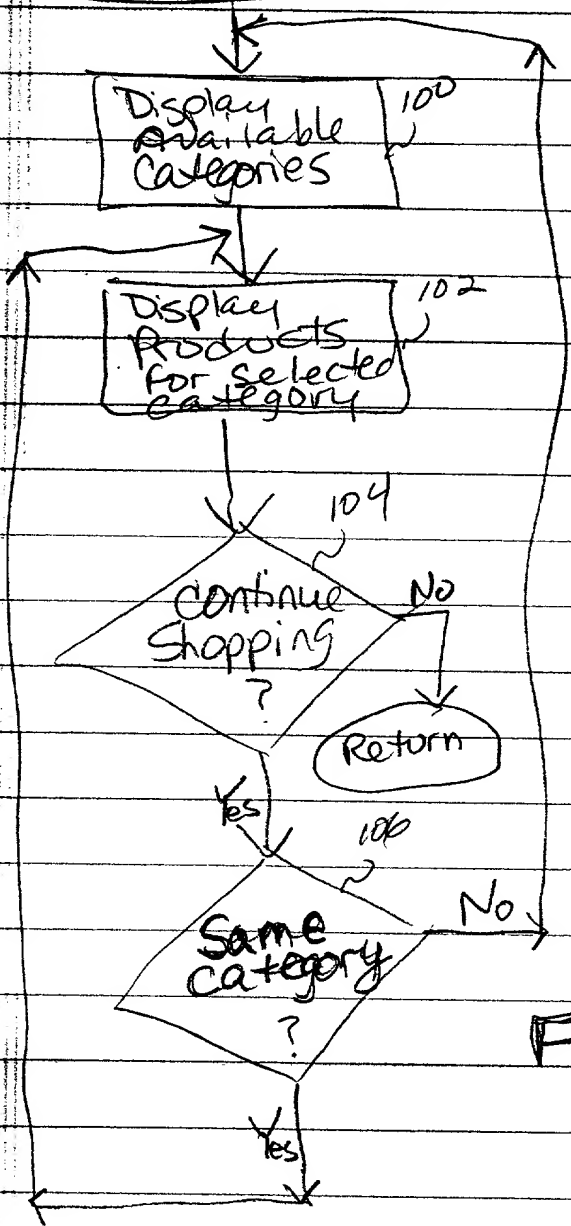 Display
Available
Categories
100
Display
Products
for selected
category
102
104
Continue
Shopping
?
No
Return
Yes
106
Same
Category
?
No
Yes